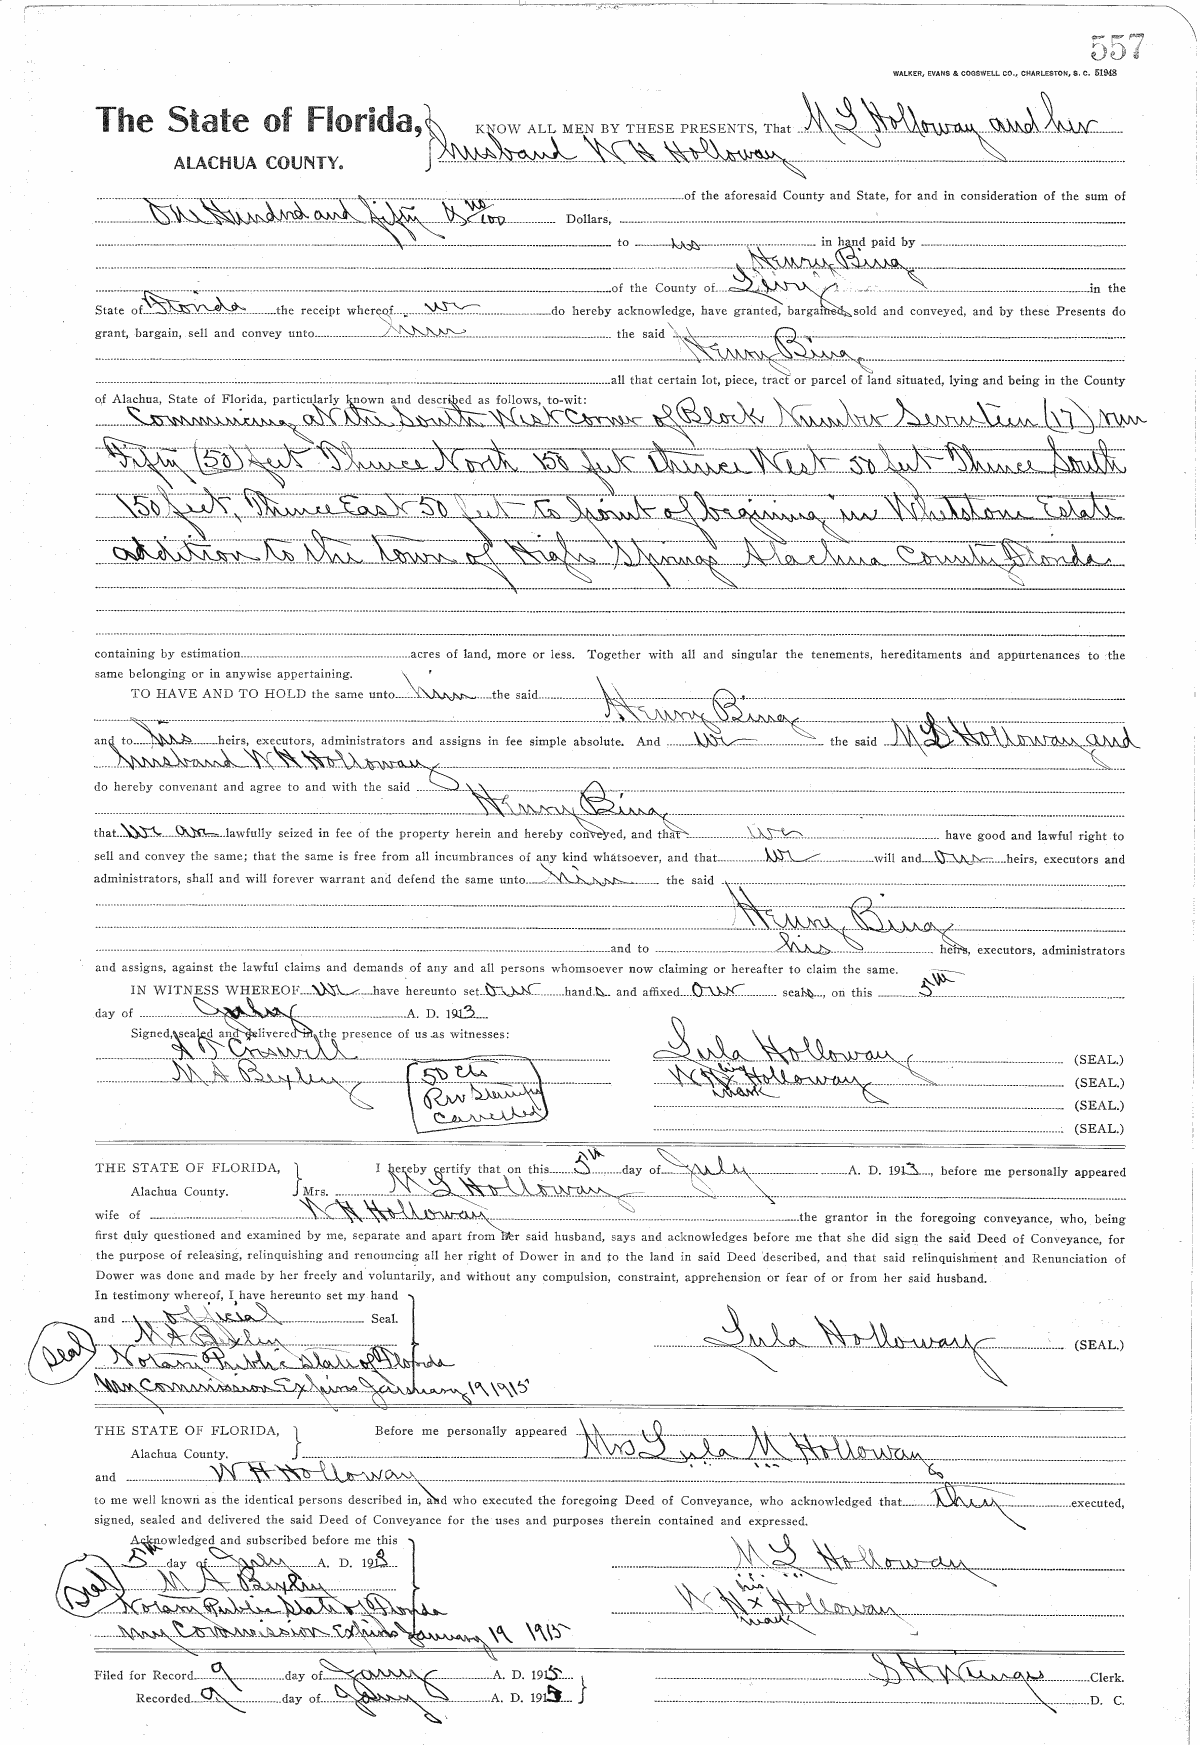 557
WALKER, EVANS & COGSWELL CO., CHARLESTON, S. C. 51948
The State of Florida, KNOW ALL MEN BY THESE PRESENTS, That M L Holloway and her
ALACHUA COUNTY. husband W H Holloway
of the aforesaid County and State, for and in consideration of the sum of
One Hundred and fifty & no/100 Dollars,
to us in hand paid by
Henry Bing
of the County of Levy in the
State of Florida the receipt whereof we do hereby acknowledge, have granted, bargained, sold and conveyed, and by these Presents do
grant, bargain, sell and convey unto him the said
Henry Bing
all that certain lot, piece, tract or parcel of land situated, lying and being in the County
of Alachua, State of Florida, particularly known and described as follows, to-wit:
Commencing at the South West Corner of Block Number Seventeen (17) run
Fifty (50) feet Thence North 150 feet thence West 50 feet Thence South
150 feet, Thence East 50 feet to point of begining in Whetstone Estate
addition to the town of High Springs Alachua County Florida
containing by estimation acres of land, more or less. Together with all and singular the tenements, hereditaments and appurtenances to the
same belonging or in anywise appertaining.
TO HAVE AND TO HOLD the same unto him the said
Henry Bing
and to his heirs, executors, administrators and assigns in fee simple absolute. And we the said M L Holloway and
husband W H Holloway
do hereby convenant and agree to and with the said
Henry Bing
that we are lawfully seized in fee of the property herein and hereby conveyed, and that we have good and lawful right to
sell and convey the same; that the same is free from all incumbrances of any kind whatsoever, and that we will and our heirs, executors and
administrators, shall and will forever warrant and defend the same unto him the said
Henry Bing
and to his heirs, executors, administrators
and assigns, against the lawful claims and demands of any and all persons whomsoever now claiming or hereafter to claim the same.
IN WITNESS WHEREOF we have hereunto set our hands and affixed our seals, on this 5th
day of July A. D. 1913
Signed, sealed and delivered in the presence of us as witnesses:
A T Croswell Lula Holloway (SEAL.)
M A Bexley W H his x mark Holloway (SEAL.)
50 cts
Rev Stamps
Cancelled
(SEAL.)
(SEAL.)
THE STATE OF FLORIDA, I hereby certify that on this 5th day of July A. D. 1913, before me personally appeared
Alachua County. Mrs. M L Holloway
wife of W H Holloway the grantor in the foregoing conveyance, who, being
first duly questioned and examined by me, separate and apart from her said husband, says and acknowledges before me that she did sign the said Deed of Conveyance, for
the purpose of releasing, relinquishing and renouncing all her right of Dower in and to the land in said Deed described, and that said relinquishment and Renunciation of
Dower was done and made by her freely and voluntarily, and without any compulsion, constraint, apprehension or fear of or from her said husband.
In testimony whereof, I have hereunto set my hand
and official Seal.
M A Bexley Lula Holloway (SEAL.)
Seal Notary Public State of Florida
My Commission Expires January 19 1915
THE STATE OF FLORIDA, Before me personally appeared Mrs Lula M Holloway
Alachua County.
and W H Holloway
to me well known as the identical persons described in, and who executed the foregoing Deed of Conveyance, who acknowledged that they executed,
signed, sealed and delivered the said Deed of Conveyance for the uses and purposes therein contained and expressed.
Acknowledged and subscribed before me this
5th day of July A. D. 1913 M L Holloway
Seal M A Bexley
Notary Public State of Florida W H his x mark Holloway
My Commission Expires January 19 1915
Filed for Record 9 day of Jany A. D. 1915 S H Wienges Clerk.
Recorded 9 day of Jany A. D. 1915 D. C.